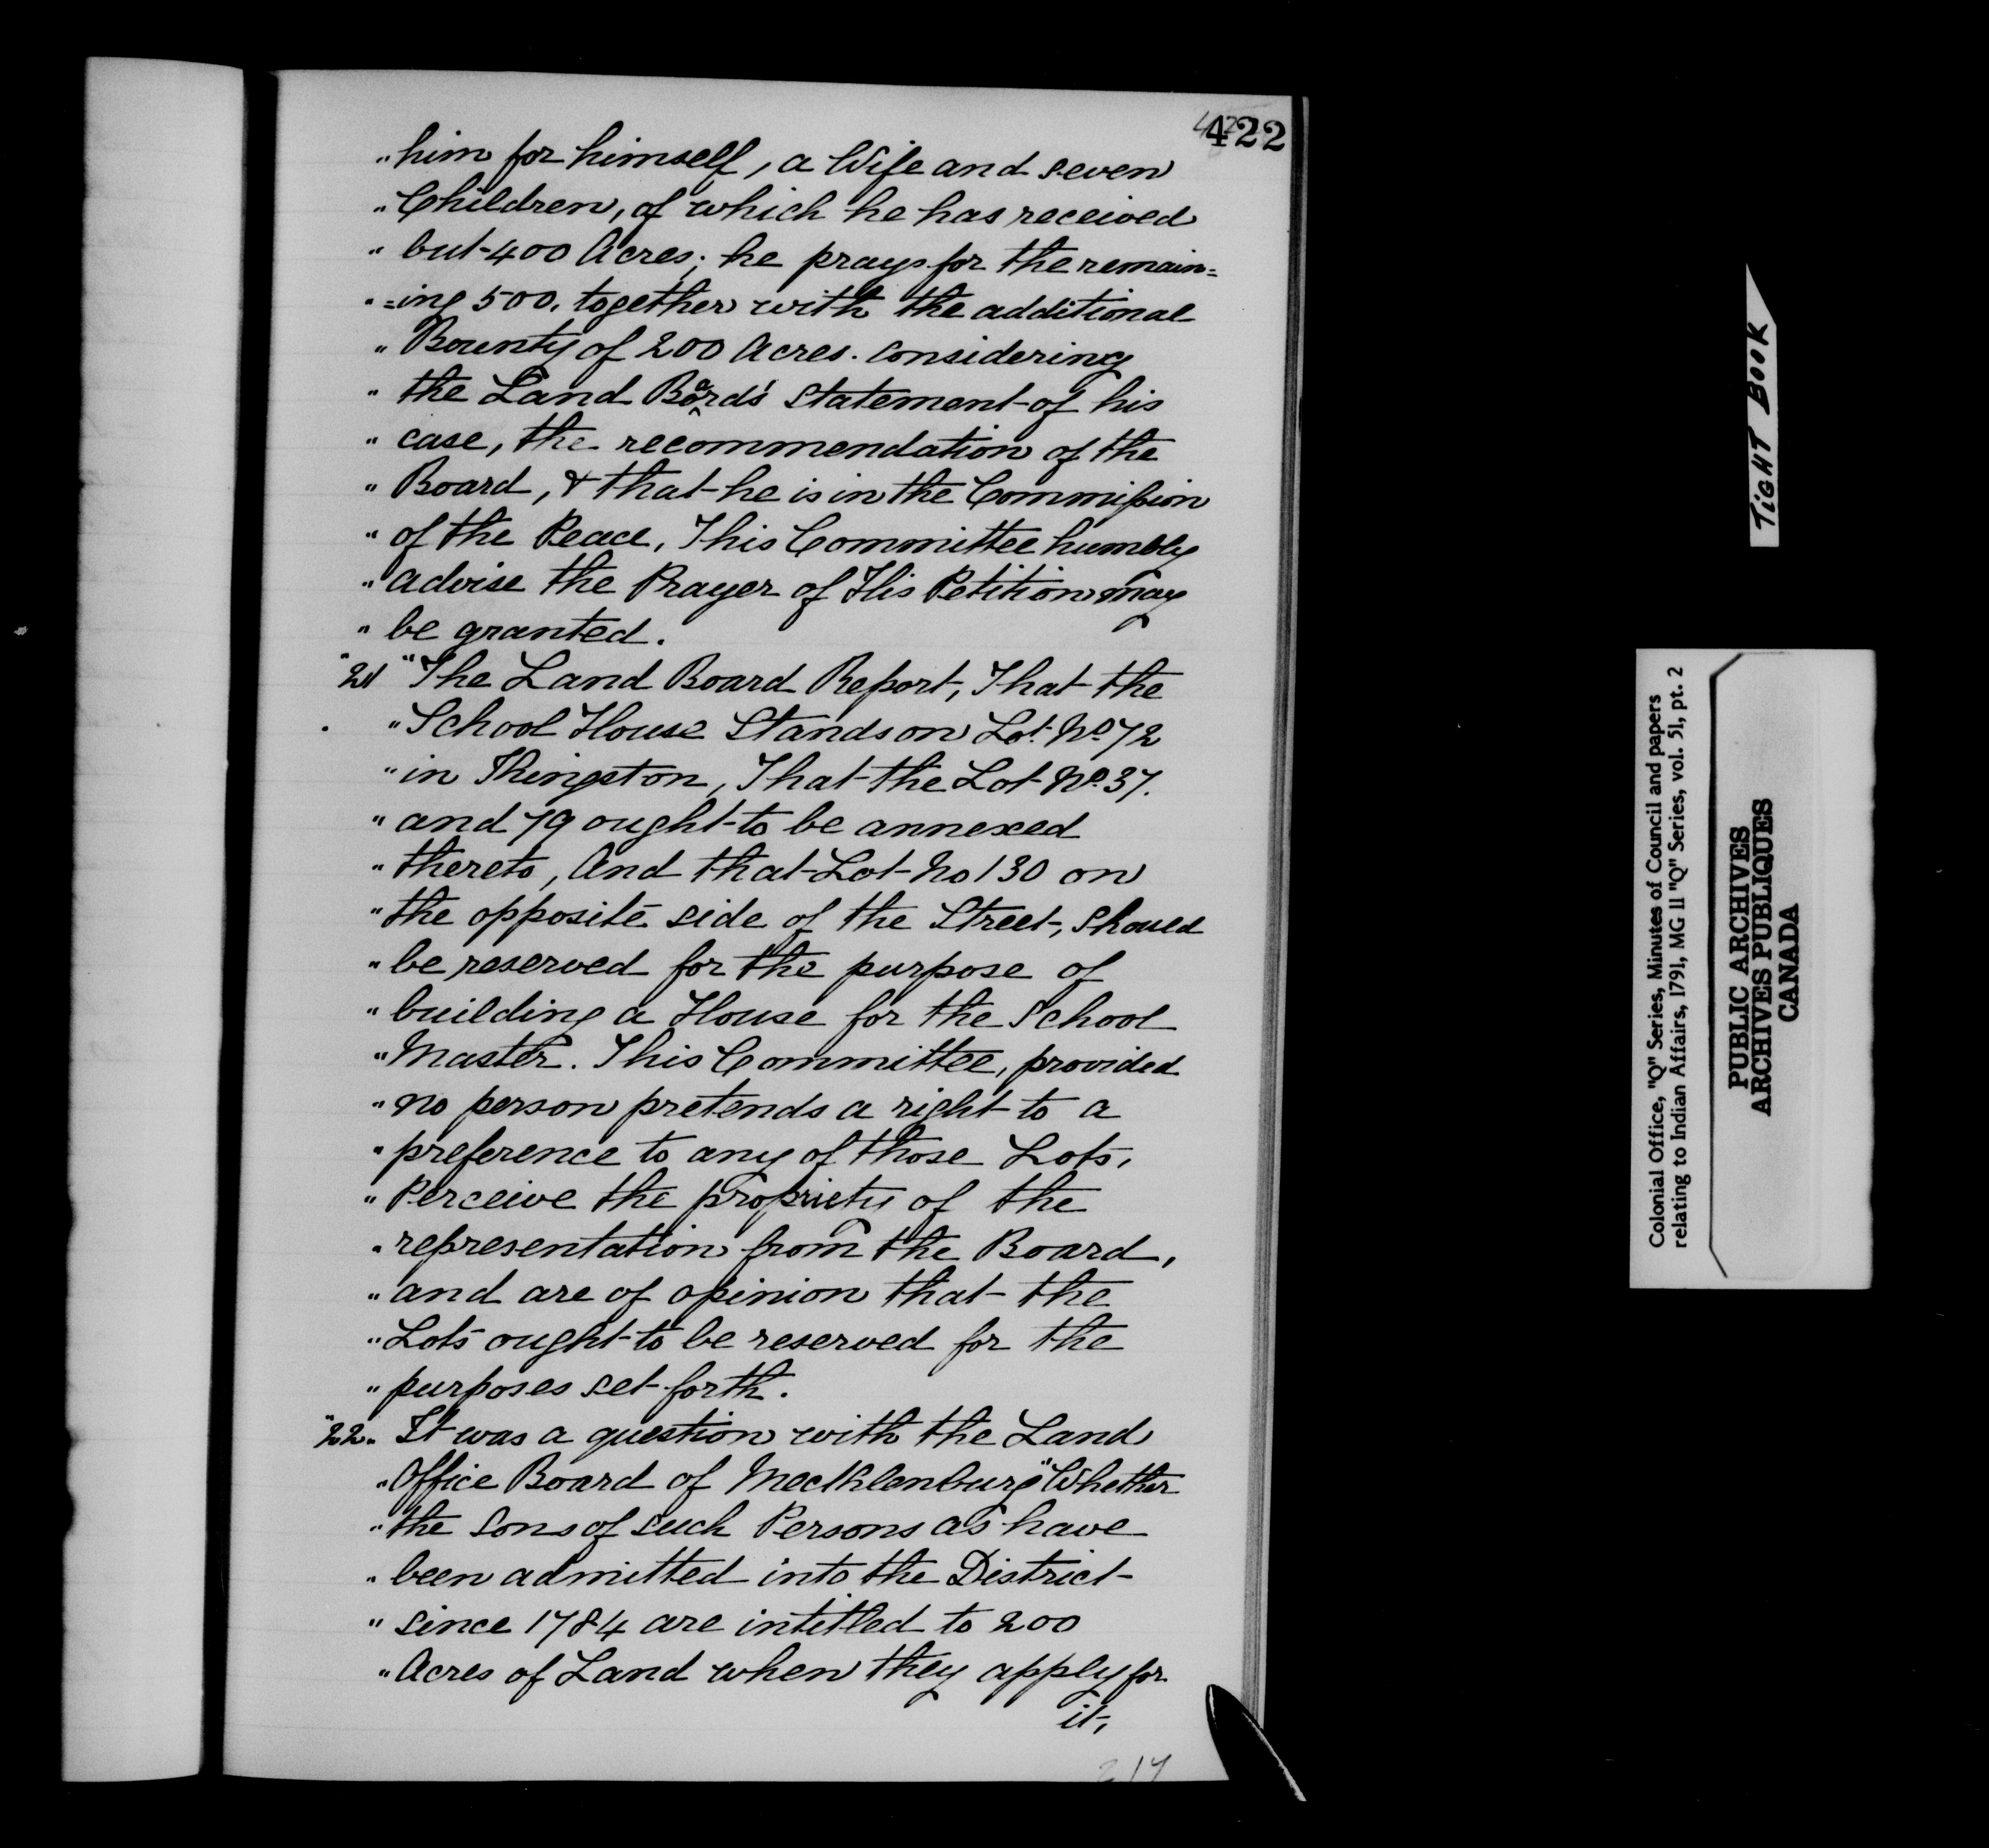 422
"him for himself, a Wife and seven
"Children, of which he has received
"but 400 Acres; he prays for the remain=
"=ing 500, together with the additional
"Bounty of 200 Acres. considering
"the Land Board's statement of his
"case, the recommendation of the
"Board, & that he is in the Commission
"of the Peace, This Committee humbly
"advise the Prayer of His Petition may
"be granted.
"21 "The Land Board Report, That the
"School House Stands on Lot No. 72
"in Kingston, That the Lot No. 37.
"and 79 ought to be annexed
"thereto, And that Lot No 130 on
"the opposite side of the Street, should
"be reserved for the purpose of
"building a House for the School
"Master. This Committee, provided
"no person pretends a right to a
"preference to any of those Lots,
"Perceive the propriety of the
"representation from the Board,
"and are of opinion that the
"Lots ought to be reserved for the
"purposes set forth.
"22. It was a question with the Land
"Office Board of Mecklenburg "Whether
"the sons of such Persons as have
"been admitted into the District
"since 1784 are intitled to 200
"Acres of Land when they apply for
it,
217
TIGHT BOOK
Colonial Office, "Q" Series, Minutes of Council and papers
relating to Indian Affairs, 1791, MG 11 "Q" Series, vol. 51, pt. 2
PUBLIC ARCHIVES
ARCHIVES PUBLIQUES
CANADA